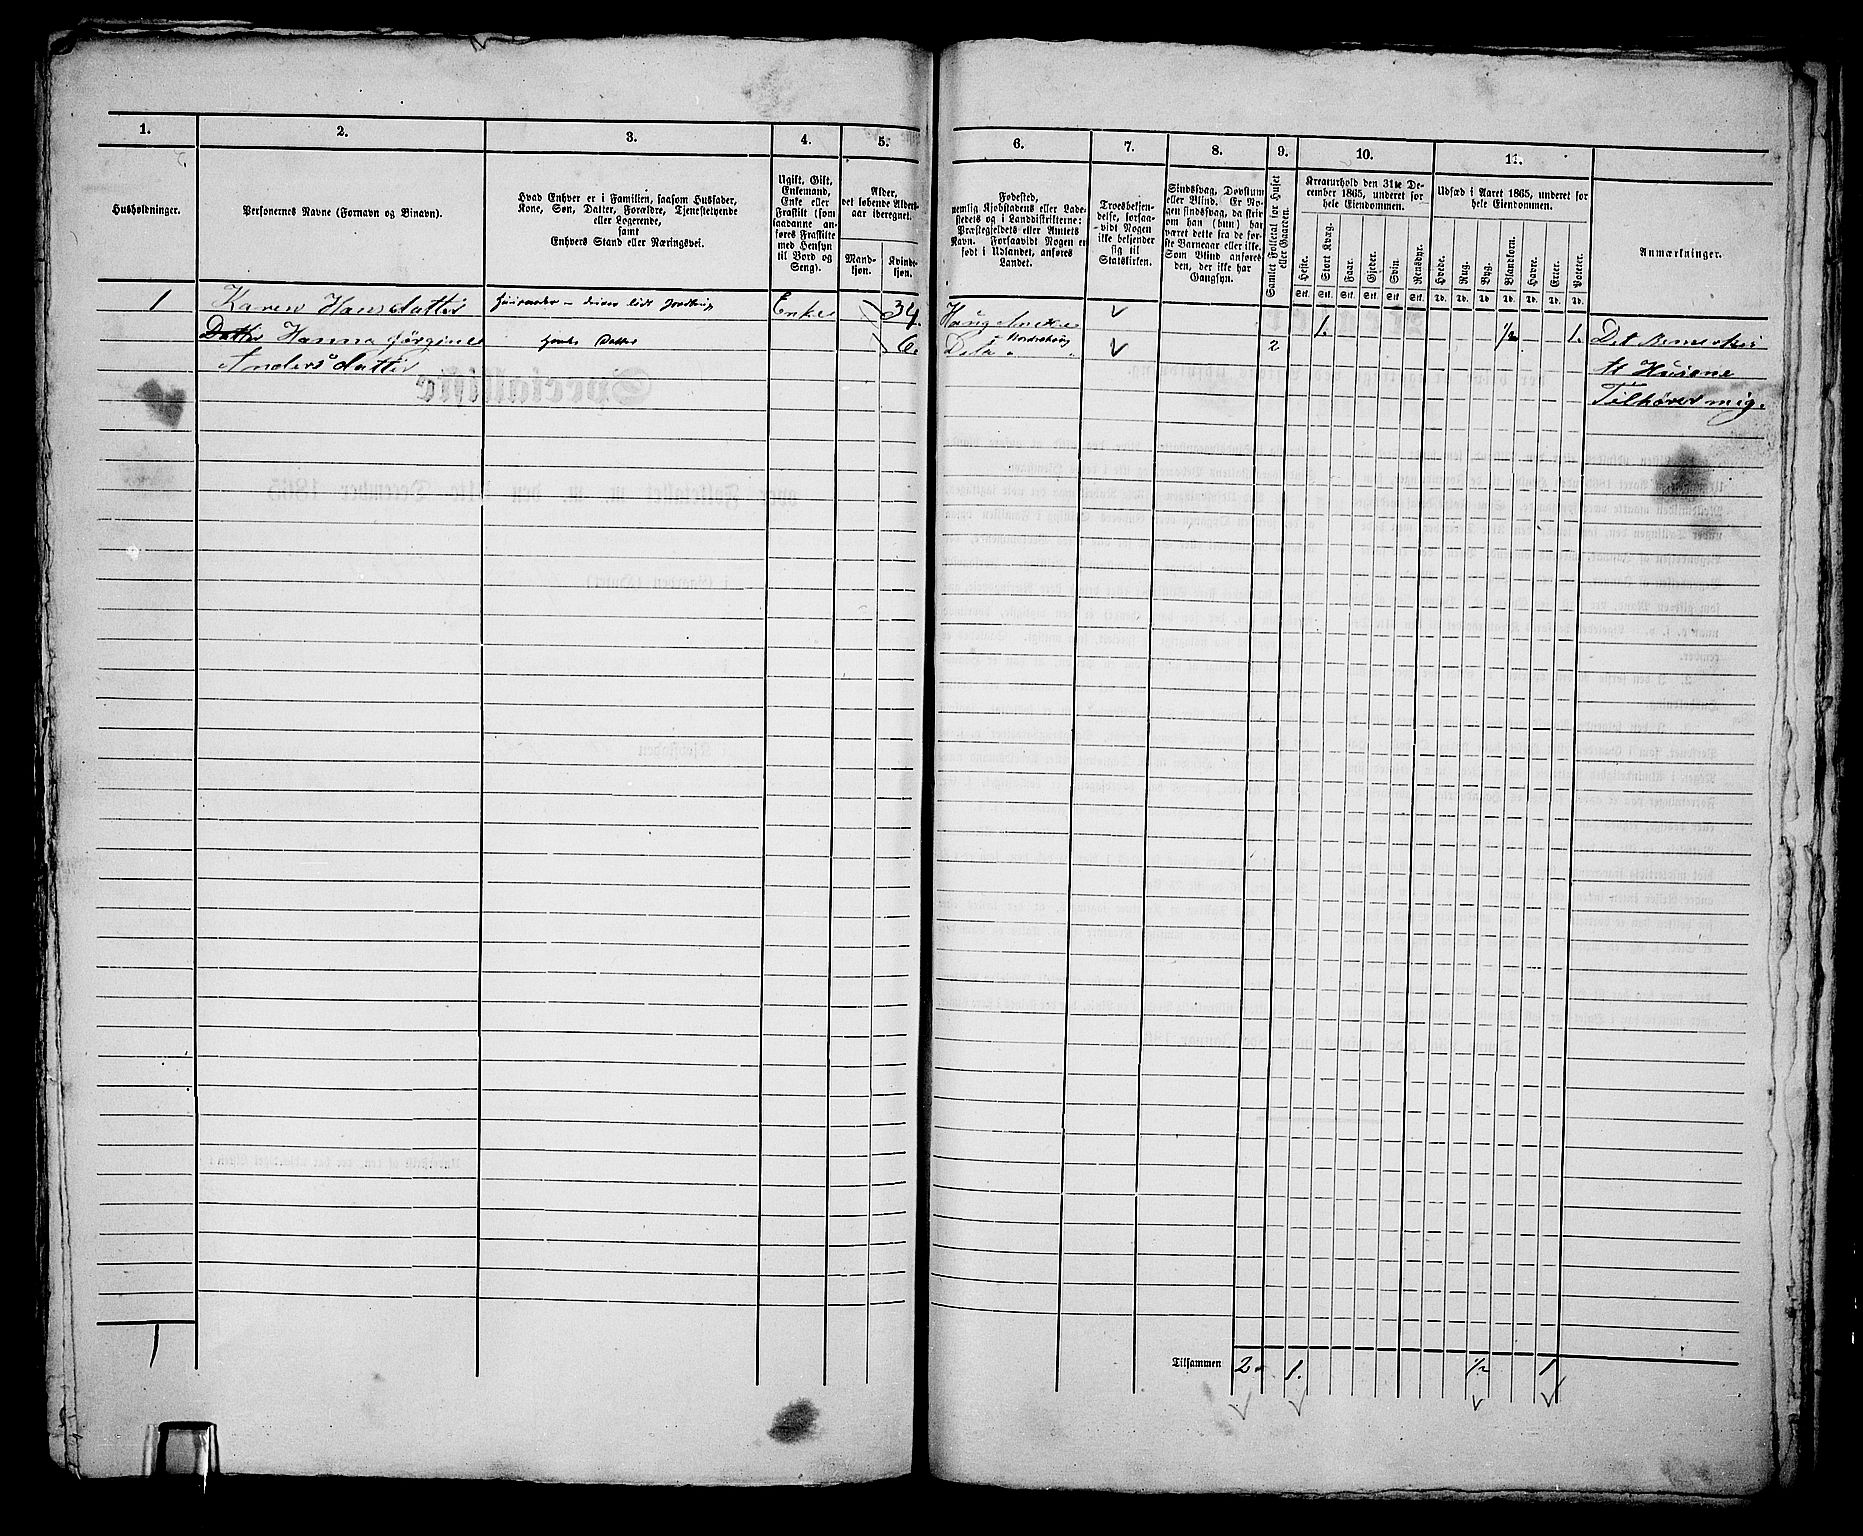 1.
2.
3.
4.
5.
Husholdninger.
Personernes Navne (Fornavn og Binavn).
Hvad Enhver er i Familien, saasom Husfader,
Kone, Søn, Datter, Forældre, Tjenestetyende
eller Logerende,
samt
Enhvers Stand eller Næringsvei.
Ugift, Gift,
Enkemand,
Enke eller
Fraskilt (som
saadanne an-
føres Fraskilte
med Hensyn
til Bord og
Seng).
Alder,
det løbende Alders-
aar iberegnet.
Mand-
kjøn.
Kvinde-
kjøn.
1 Karen Hansdatter driver lidt Enke 34.
Datter Hanna Jørgine Datter 6.
Andersdatter
1
6.
7.
8.
9.
10.
11.
Fødested,
nemlig Kjøbstadens eller Lade-
stedets og i Landdistrikterne:
Præstegjeldets eller Annexets
Navn. Forsaavidt Nogen er
født i Udlandet, anføres
Landet.
Troesbekjen-
delse, forsaa-
vidt Nogen
ikke bekjender
sig til
Statskirken.
Sindssvag, Døvstum
eller Blind. Er No-
gen sindssvag, da skriv
om han (hun) har
været dette fra de før-
ste Barneaar eller ikke.
Som Blind anføres
den, der ikke har
Gangsyn.
Samlet Folketal for Huset
eller Gaarden.
Kreaturhold den 31te De-
cember 1865, underet for
hele Eiendommen.
Heste.
Stort Kvæg.
Faar.
Gjeder.
Svin.
Rensdyr.
Stk. Stk. Stk. Stk. Stk. Stk.
Udsæd i Aaret 1865, underet for
hele Eiendommen.
Hvede.
Rug.
Byg.
Blandkorn.
Havre.
Erter.
Poteter.
Td. Td. Td. Td. Td. Td. Td.
Anmærkninger.
Haug 1. ½ 1. Det
Deto 2 At Husene
Tilhører mig.
Tilsammen 2 1. ½ 1